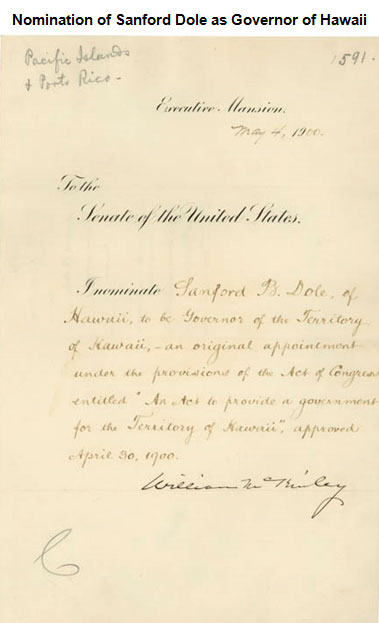 Nomination of Sanford Dole as Governor of Hawaii
Pacific Islands
& Porto Rico -
1591.
Executive Mansion.
May 4, 1900.
To the
Senate of the United States.
I nominate Sanford B. Dole, of
Hawaii, to be Governor of the Territory
of Hawaii, - an original appointment
under the provisions of the Act of Congress
entitled "An Act to provide a government
for the Territory of Hawaii", approved
April 30, 1900.
William McKinley
C